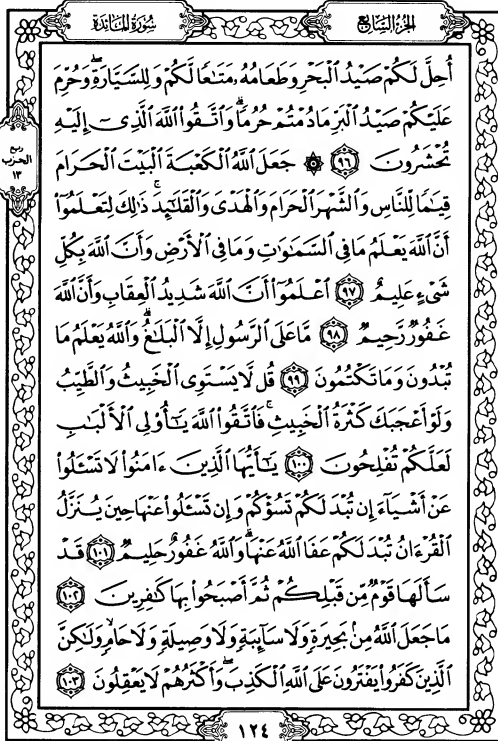 الجزء السابع
سورة المائدة
أُحِلَّ لَكُمْ صَيْدُ الْبَحْرِ وَطَعَامُهُ مَتَاعًا لَّكُمْ وَلِلسَّيَّارَةِ ۖ وَحُرِّمَ
عَلَيْكُمْ صَيْدُ الْبَرِّ مَا دُمْتُمْ حُرُمًا ۗ وَاتَّقُوا اللَّهَ الَّذِي إِلَيْهِ
تُحْشَرُونَ ٩٦ ۞ جَعَلَ اللَّهُ الْكَعْبَةَ الْبَيْتَ الْحَرَامَ
ربع
الحزب
١٣
قِيَامًا لِّلنَّاسِ وَالشَّهْرَ الْحَرَامَ وَالْهَدْيَ وَالْقَلَائِدَ ۚ ذَٰلِكَ لِتَعْلَمُوا
أَنَّ اللَّهَ يَعْلَمُ مَا فِي السَّمَاوَاتِ وَمَا فِي الْأَرْضِ وَأَنَّ اللَّهَ بِكُلِّ
شَيْءٍ عَلِيمٌ ٩٧ اعْلَمُوا أَنَّ اللَّهَ شَدِيدُ الْعِقَابِ وَأَنَّ اللَّهَ
غَفُورٌ رَّحِيمٌ ٩٨ مَّا عَلَى الرَّسُولِ إِلَّا الْبَلَاغُ ۗ وَاللَّهُ يَعْلَمُ مَا
تُبْدُونَ وَمَا تَكْتُمُونَ ٩٩ قُل لَّا يَسْتَوِي الْخَبِيثُ وَالطَّيِّبُ
وَلَوْ أَعْجَبَكَ كَثْرَةُ الْخَبِيثِ ۚ فَاتَّقُوا اللَّهَ يَا أُولِي الْأَلْبَابِ
لَعَلَّكُمْ تُفْلِحُونَ ١٠٠ يَا أَيُّهَا الَّذِينَ آمَنُوا لَا تَسْأَلُوا
عَنْ أَشْيَاءَ إِن تُبْدَ لَكُمْ تَسُؤْكُمْ وَإِن تَسْأَلُوا عَنْهَا حِينَ يُنَزَّلُ
الْقُرْآنُ تُبْدَ لَكُمْ عَفَا اللَّهُ عَنْهَا ۗ وَاللَّهُ غَفُورٌ حَلِيمٌ ١٠١ قَدْ
سَأَلَهَا قَوْمٌ مِّن قَبْلِكُمْ ثُمَّ أَصْبَحُوا بِهَا كَافِرِينَ ١٠٢
مَا جَعَلَ اللَّهُ مِن بَحِيرَةٍ وَلَا سَائِبَةٍ وَلَا وَصِيلَةٍ وَلَا حَامٍ ۙ وَلَٰكِنَّ
الَّذِينَ كَفَرُوا يَفْتَرُونَ عَلَى اللَّهِ الْكَذِبَ ۖ وَأَكْثَرُهُمْ لَا يَعْقِلُونَ ١٠٣
١٢٤